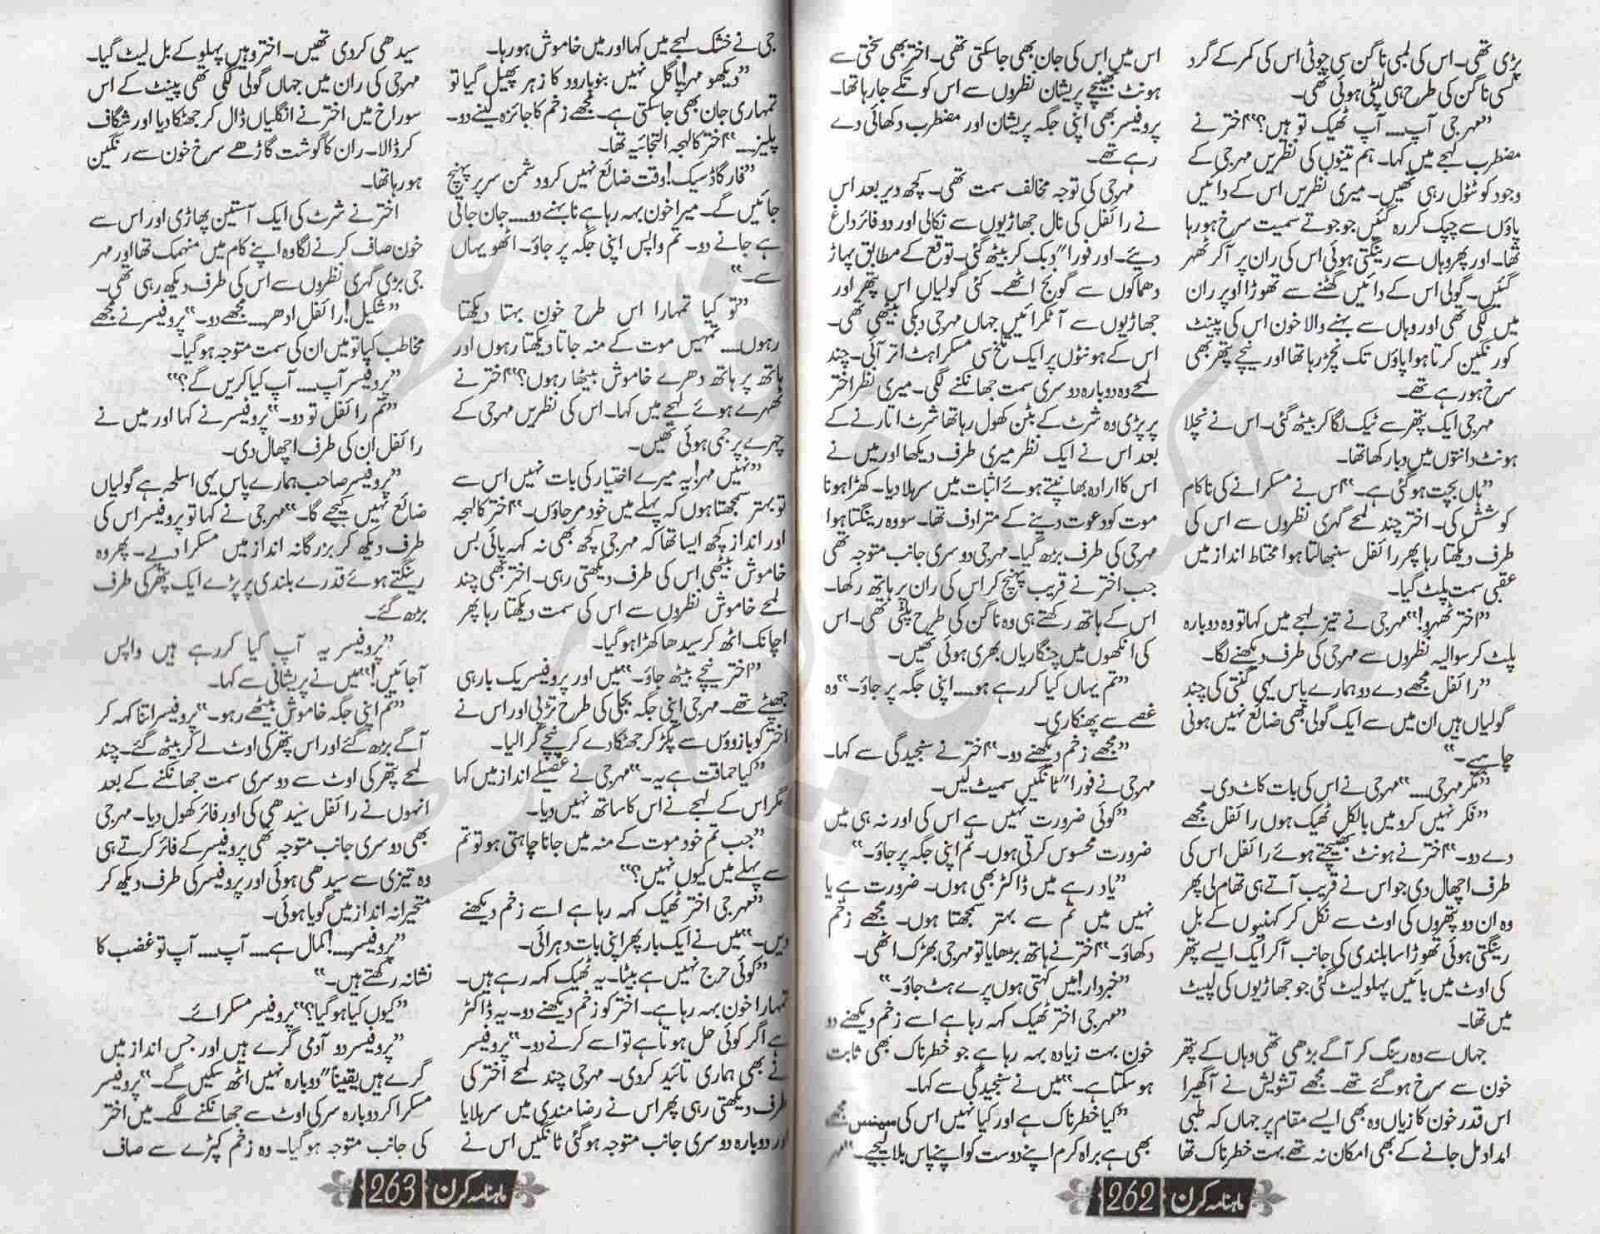 بڑی تھی۔ اس کی لمبی ناگن سی چوٹی اس کی کمر کے گرد
کسی ناگن کی طرح ہی لپٹی ہوئی تھی۔
”مہر جی آپ.... آپ ٹھیک تو ہیں؟“ اختر نے
مضطرب لہجے میں کہا۔ ہم تینوں کی نظریں مہر جی کے
وجود کو ٹٹول رہی تھیں۔ میری نظریں اس کے دائیں
پاؤں سے چپک کر رہ گئیں جو جوتے سمیت سرخ ہو رہا
تھا۔ اور پھر وہاں سے رینگتی ہوئی اس کی ران پر آ کر ٹھہر
گئیں۔ گولی اس کے دائیں گھٹنے سے تھوڑا اوپر ران
میں لگی تھی اور وہاں سے بہنے والا خون اس کی پینٹ
کو رنگین کرتا ہوا پاؤں تک نچڑ رہا تھا اور نیچے پتھر بھی
سرخ ہو رہے تھے۔
مہر جی ایک پتھر سے ٹیک لگا کر بیٹھ گئی۔ اس نے نچلا
ہونٹ دانتوں میں دبا رکھا تھا۔
”ہاں بچت ہو گئی ہے۔“ اس نے مسکرانے کی ناکام
کوشش کی۔ اختر چند لمحے گہری نظروں سے اس کی
طرف دیکھتا رہا پھر رائفل سنبھالتا ہوا محتاط انداز میں
عقبی سمت پلٹ گیا۔
”اختر ٹھہرو!“ مہر جی نے تیز لہجے میں کہا تو وہ دوبارہ
پلٹ کر سوالیہ نظروں سے مہر جی کی طرف دیکھنے لگا۔
”رائفل مجھے دے دو ہمارے پاس یہی گنتی کی چند
گولیاں ہیں ان میں سے ایک گولی بھی ضائع نہیں ہونی
چاہیے۔“
”مگر مہر جی....“ مہر جی نے اس کی بات کاٹ دی۔
”فکر نہیں کرو میں بالکل ٹھیک ہوں رائفل مجھے
دے دو۔“ اختر نے ہونٹ بھینچتے ہوئے رائفل اس کی
طرف اچھال دی جو اس نے قریب آتے ہی تھام لی پھر
وہ ان دو پتھروں کی اوٹ سے نکل کر کہنیوں کے بل
رینگتی ہوئی تھوڑا سا بلندی کی جانب آ کر ایک ایسے پتھر
کی اوٹ میں بائیں پہلو لیٹ گئی جو جھاڑیوں کی لپیٹ
میں تھا۔
جہاں سے وہ رینگ کر آگے بڑھی تھی وہاں کے پتھر
خون سے سرخ ہو گئے تھے۔ مجھے تشویش نے آ گھیرا
اس قدر خون کا زیاں وہ بھی ایسے مقام پر جہاں کہ طبی
امداد مل جانے کے بھی امکان نہ تھے بہت خطرناک تھا
اس میں اس کی جان بھی جا سکتی تھی۔ اختر بھی سختی سے
ہونٹ بھینچے پریشان نظروں سے اس کو تکے جا رہا تھا۔
پروفیسر بھی اپنی جگہ پریشان اور مضطرب دکھائی دے
رہے تھے۔
مہر جی کی توجہ مخالف سمت تھی۔ کچھ دیر بعد اس
نے رائفل کی نال جھاڑیوں سے نکالی اور دو فائر داغ
دیئے۔ اور فورا" دبک کر بیٹھ گئی۔ توقع کے مطابق پہاڑ
دھماکوں سے گونج اٹھے۔ کئی گولیاں اس پتھر اور
جھاڑیوں سے آ ٹکرائیں جہاں مہر جی دبکی بیٹھی تھی۔
اس کے ہونٹوں پر ایک تلخ سی مسکراہٹ اتر آئی۔ چند
لمحے وہ دوبارہ دوسری سمت جھانکنے لگی۔ میری نظر اختر
پر پڑی وہ شرٹ کے بٹن کھول رہا تھا شرٹ اتارنے کے
بعد اس نے ایک نظر میری طرف دیکھا اور میں نے
اس کا ارادہ بھانپتے ہوئے اثبات میں سر ہلا دیا۔ کھڑا ہونا
موت کو دعوت دینے کے مترادف تھا۔ سو وہ رینگتا ہوا
مہر جی کی طرف بڑھ گیا۔ مہر جی دوسری جانب متوجہ تھی
جب اختر نے قریب پہنچ کر اس کی ران پر ہاتھ رکھا۔
اس کے ہاتھ رکھتے ہی وہ ناگن کی طرح پلٹی تھی۔ اس
کی آنکھوں میں چنگاریاں بھری ہوئی تھیں۔
”تم یہاں کیا کر رہے ہو.... اپنی جگہ پر جاؤ۔“ وہ
غصے سے پھنکاری۔
”مجھے زخم دیکھنے دو۔“ اختر نے سنجیدگی سے کہا۔
مہر جی نے فورا" ٹانگیں سمیٹ لیں۔
”کوئی ضرورت نہیں ہے اس کی اور نہ ہی میں
ضرورت محسوس کرتی ہوں۔ تم اپنی جگہ پر جاؤ۔“
”یاد رہے میں ڈاکٹر بھی ہوں۔ ضرورت ہے یا
نہیں میں تم سے بہتر سمجھتا ہوں۔ مجھے زخم
دکھاؤ۔“ اختر نے ہاتھ بڑھایا تو مہر جی بھڑک اٹھی۔
”خبردار! میں کہتی ہوں پرے ہٹ جاؤ۔“
”مہر جی اختر ٹھیک کہہ رہا ہے اسے زخم دیکھنے دو
خون بہت زیادہ بہہ رہا ہے جو خطرناک بھی ثابت
ہو سکتا ہے۔“ میں نے سنجیدگی سے کہا۔
”کیا خطرناک ہے اور کیا نہیں اس کی سینس مجھے
بھی ہے براہ کرم اپنے دوست کو اپنے پاس بلا لیجیے۔“ مہر
262 ماہنامہ کرن
جی نے خشک لہجے میں کہا اور میں خاموش ہو رہا۔
”دیکھو مہر! پاگل نہیں بنو بارود کا زہر پھیل گیا تو
تمہاری جان بھی جا سکتی ہے۔ مجھے زخم کا جائزہ لینے دو۔
پلیز....“ اختر کا لہجہ التجائیہ تھا۔
”فار گاڈ سیک! وقت ضائع نہیں کرو دشمن سر پر پہنچ
جائیں گے۔ میرا خون بہہ رہا ہے نا بہنے دو.... جان جاتی
ہے جانے دو۔ تم واپس اپنی جگہ پر جاؤ۔ اٹھو یہاں
سے۔“
”تو کیا تمہارا اس طرح خون بہتا دیکھتا
رہوں.... تمہیں موت کے منہ جاتا دیکھتا رہوں اور
ہاتھ پر ہاتھ دھرے خاموش بیٹھا رہوں؟“ اختر نے
ٹھہرے ہوئے لہجے میں کہا۔ اس کی نظریں مہر جی کے
چہرے پر جمی ہوئی تھیں۔
”نہیں مہر! یہ میرے اختیار کی بات نہیں اس سے
تو بہتر سمجھتا ہوں کہ پہلے میں خود مر جاؤں۔“ اختر کا لہجہ
اور انداز کچھ ایسا تھا کہ مہر جی کچھ بھی نہ کہہ پائی بس
خاموش بیٹھی اس کی طرف دیکھتی رہی۔ اختر بھی چند
لمحے خاموش نظروں سے اس کی سمت دیکھتا رہا پھر
اچانک اٹھ کر سیدھا کھڑا ہو گیا۔
”اختر نیچے بیٹھ جاؤ۔“ میں اور پروفیسر یک بارہی
جھپٹے تھے۔ مہر جی اپنی جگہ بجلی کی طرح تڑپی اور اس نے
اختر کو بازوؤں سے پکڑ کر جھٹکا دے کر نیچے گرا لیا۔
”کیا حماقت ہے یہ۔“ مہر جی نے غصیلے انداز میں کہا
مگر اس کے لہجے نے اس کا ساتھ نہیں دیا۔
”جب تم خود موت کے منہ میں جانا چاہتی ہو تو تم
سے پہلے میں کیوں نہیں؟“
”مہر جی اختر ٹھیک کہہ رہا ہے اسے زخم دیکھنے
دیں۔“ میں نے ایک بار پھر اپنی بات دہرائی۔
”کوئی حرج نہیں ہے بیٹا۔ یہ ٹھیک کہہ رہے ہیں۔
تمہارا خون بہہ رہا ہے۔ اختر کو زخم دیکھنے دو۔ یہ ڈاکٹر
ہے اگر کوئی حل ہوتا ہے تو اسے کرنے دو۔“ پروفیسر
نے بھی ہماری تائید کر دی۔ مہر جی چند لمحے اختر کی
طرف دیکھتی رہی پھر اس نے رضا مندی میں سر ہلایا
اور دوبارہ دوسری جانب متوجہ ہو گئی ٹانگیں اس نے
سیدھی کر دی تھیں۔ اختر وہیں پہلو کے بل لیٹ گیا۔
مہر جی کی ران میں جہاں گولی لگی تھی پینٹ کے اس
سوراخ میں اختر نے انگلیاں ڈال کر جھٹکا دیا اور شگاف
کر ڈالا۔ ران کا گوشت گاڑھے سرخ خون سے رنگین
ہو رہا تھا۔
اختر نے شرٹ کی ایک آستین پھاڑی اور اس سے
خون صاف کرنے لگا وہ اپنے کام میں منہمک تھا اور مہر
جی بڑی گہری نظروں سے اس کی طرف دیکھ رہی تھی۔
”شکیل! رائفل ادھر.... مجھے دو۔“ پروفیسر نے مجھے
مخاطب کیا تو میں ان کی سمت متوجہ ہو گیا۔
”پروفیسر آپ.... آپ کیا کریں گے؟“
”تم رائفل تو دو۔“ پروفیسر نے کہا اور میں نے
رائفل ان کی طرف اچھال دی۔
”پروفیسر صاحب ہمارے پاس یہی اسلحہ ہے گولیاں
ضائع نہیں کیجیے گا۔“ مہر جی نے کہا تو پروفیسر اس کی
طرف دیکھ کر بزرگانہ انداز میں مسکرا دیے۔ پھر وہ
رینگتے ہوئے قدرے بلندی پر پڑے ایک پتھر کی طرف
بڑھ گئے۔
”پروفیسر یہ آپ کیا کر رہے ہیں واپس
آ جائیں!“ میں نے پریشانی سے کہا۔
”تم اپنی جگہ خاموش بیٹھے رہو۔“ پروفیسر اتنا کہہ کر
آگے بڑھ گئے اور اس پتھر کی اوٹ لے کر بیٹھ گئے۔ چند
لمحے پتھر کی اوٹ سے دوسری سمت جھانکنے کے بعد
انہوں نے رائفل سیدھی کی اور فائر کھول دیا۔ مہر جی
بھی دوسری جانب متوجہ تھی پروفیسر کے فائر کرتے ہی
وہ تیزی سے سیدھی ہوئی اور پروفیسر کی طرف دیکھ کر
متحیرانہ انداز میں گویا ہوئی۔
”پروفیسر....! کمال ہے.... آپ.... آپ تو غضب کا
نشانہ رکھتے ہیں۔“
”کیوں کیا ہو گیا؟“ پروفیسر مسکرائے۔
”پروفیسر دو آدمی گرے ہیں اور جس انداز میں
گرے ہیں یقینا" دوبارہ نہیں اٹھ سکیں گے۔“ پروفیسر
مسکرا کر دوبارہ سر کی اوٹ سے جھانکنے لگے۔ میں اختر
کی جانب متوجہ ہو گیا۔ وہ زخم کپڑے سے صاف
263 ماہنامہ کرن